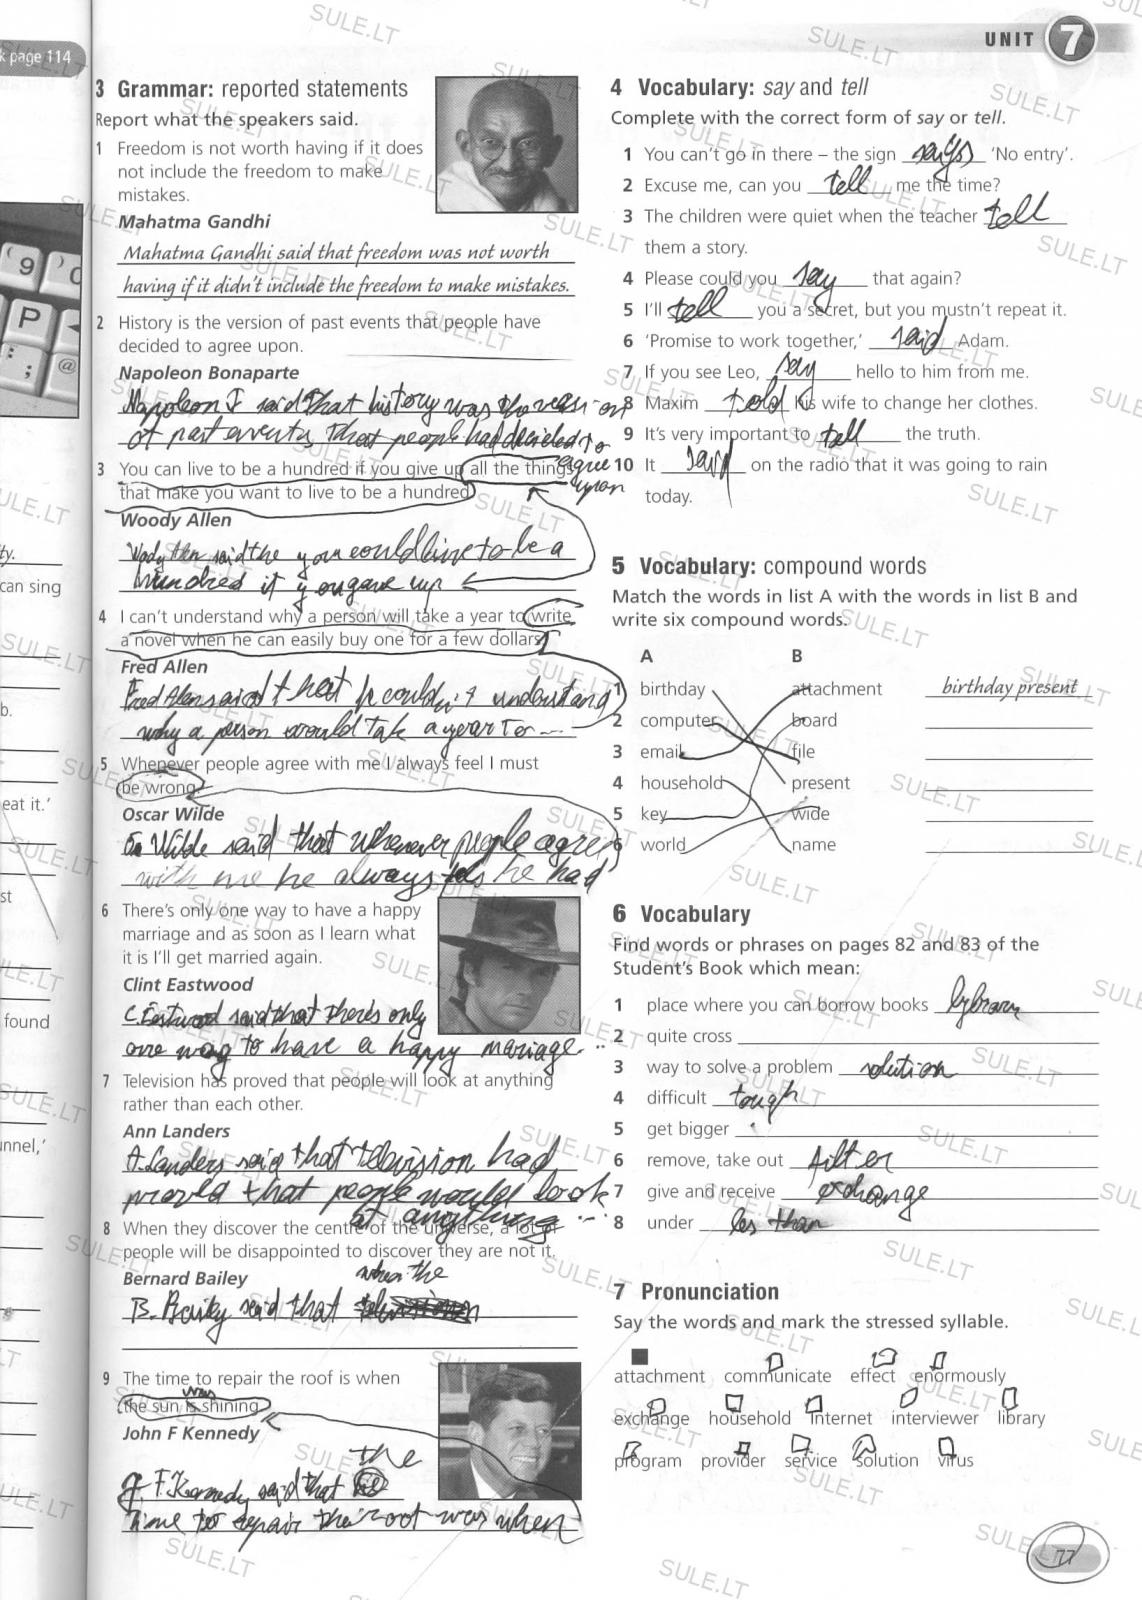 k page 114
UNIT 7
3 Grammar: reported statements
Report what the speakers said.
1 Freedom is not worth having if it does
not include the freedom to make
mistakes.
Mahatma Gandhi
Mahatma Gandhi said that freedom was not worth
having if it didn't include the freedom to make mistakes.
2 History is the version of past events that people have
decided to agree upon.
Napoleon Bonaparte
Napoleon I said that history was the version
of past events that people had decided to
agree
upon
3 You can live to be a hundred if you give up all the things
that make you want to live to be a hundred
Woody Allen
said the you could live to be a
hundred if you gave up
4 I can't understand why a person will take a year to write
a novel when he can easily buy one for a few dollars
Fred Allen
Fred Alen said that he couldn't understand
why a person would take a year to ...
5 Whenever people agree with me I always feel I must
be wrong.
Oscar Wilde
Wilde said that whenever people agree
with me he always he had
6 There's only one way to have a happy
marriage and as soon as I learn what
it is I'll get married again.
Clint Eastwood
C. Eastwood said that there's only
one way to have a happy mariage...
7 Television has proved that people will look at anything
rather than each other.
Ann Landers
A. Landers said that television had
that people would look
at anything ...
8 When they discover the centre of the universe, a lot of
people will be disappointed to discover they are not it.
Bernard Bailey
when the
B. said that
9 The time to repair the roof is when
was
the sun is shining
John F Kennedy
the
J. F. Kennedy said that
time to repair the roof was when
4 Vocabulary: say and tell
Complete with the correct form of say or tell.
1 You can't go in there – the sign says 'No entry'.
2 Excuse me, can you tell me the time?
3 The children were quiet when the teacher tell
them a story.
4 Please could you say that again?
5 I'll tell you a secret, but you mustn't repeat it.
6 'Promise to work together,' said Adam.
7 If you see Leo, say hello to him from me.
8 Maxim told his wife to change her clothes.
9 It's very important to tell the truth.
10 It said on the radio that it was going to rain
today.
5 Vocabulary: compound words
Match the words in list A with the words in list B and
write six compound words.
A B
1 birthday attachment birthday present
2 computer board
3 email file
4 household present
5 key wide
6 world name
6 Vocabulary
Find words or phrases on pages 82 and 83 of the
Student's Book which mean:
1 place where you can borrow books
2 quite cross
3 way to solve a problem solution
4 difficult tough
5 get bigger
6 remove, take out filter
7 give and receive exchange
8 under les than
7 Pronunciation
Say the words and mark the stressed syllable.
attachment communicate effect enormously
exchange household Internet interviewer library
program provider service solution virus
77
9
P
@
ty.
can sing
b.
eat it.'
st
found
nnel,'
SULE.LT